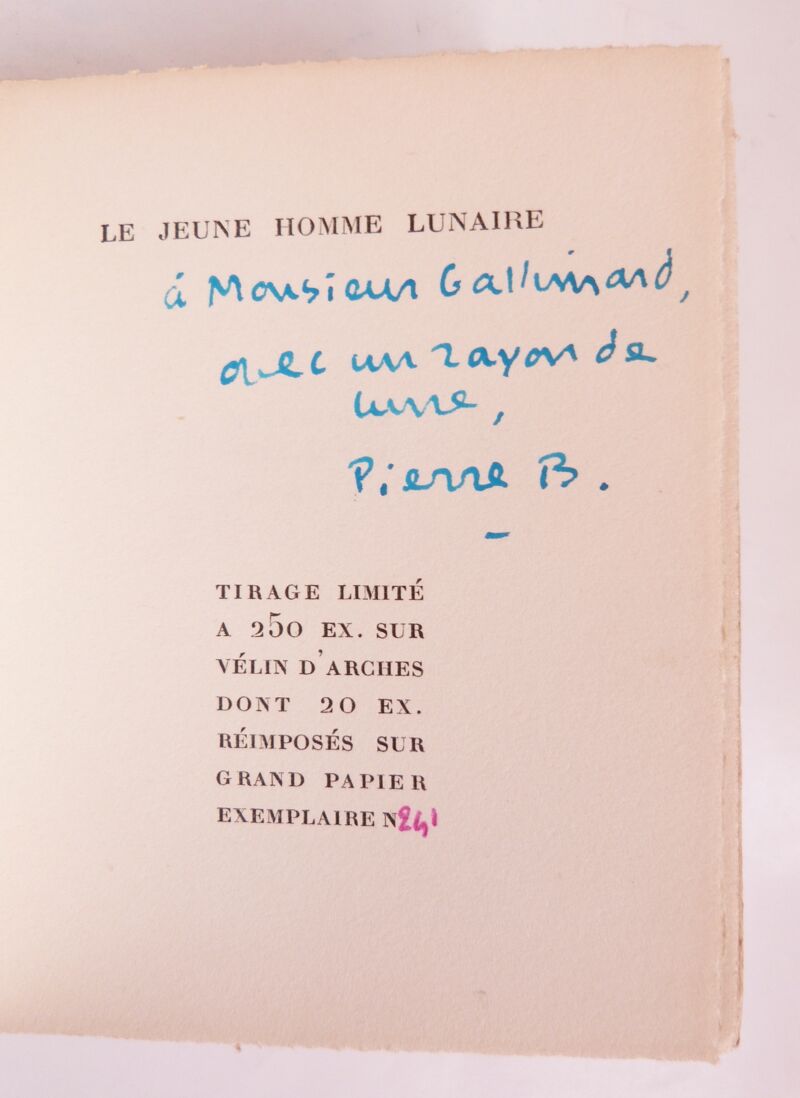 LE JEUNE HOMME LUNAIRE
à Monsieur Gallimard,
avec un rayon de
lune,
Pierre B.
TIRAGE LIMITÉ
A 250 EX. SUR
VÉLIN D'ARCHES
DONT 20 EX.
RÉIMPOSÉS SUR
GRAND PAPIER
EXEMPLAIRE N 241